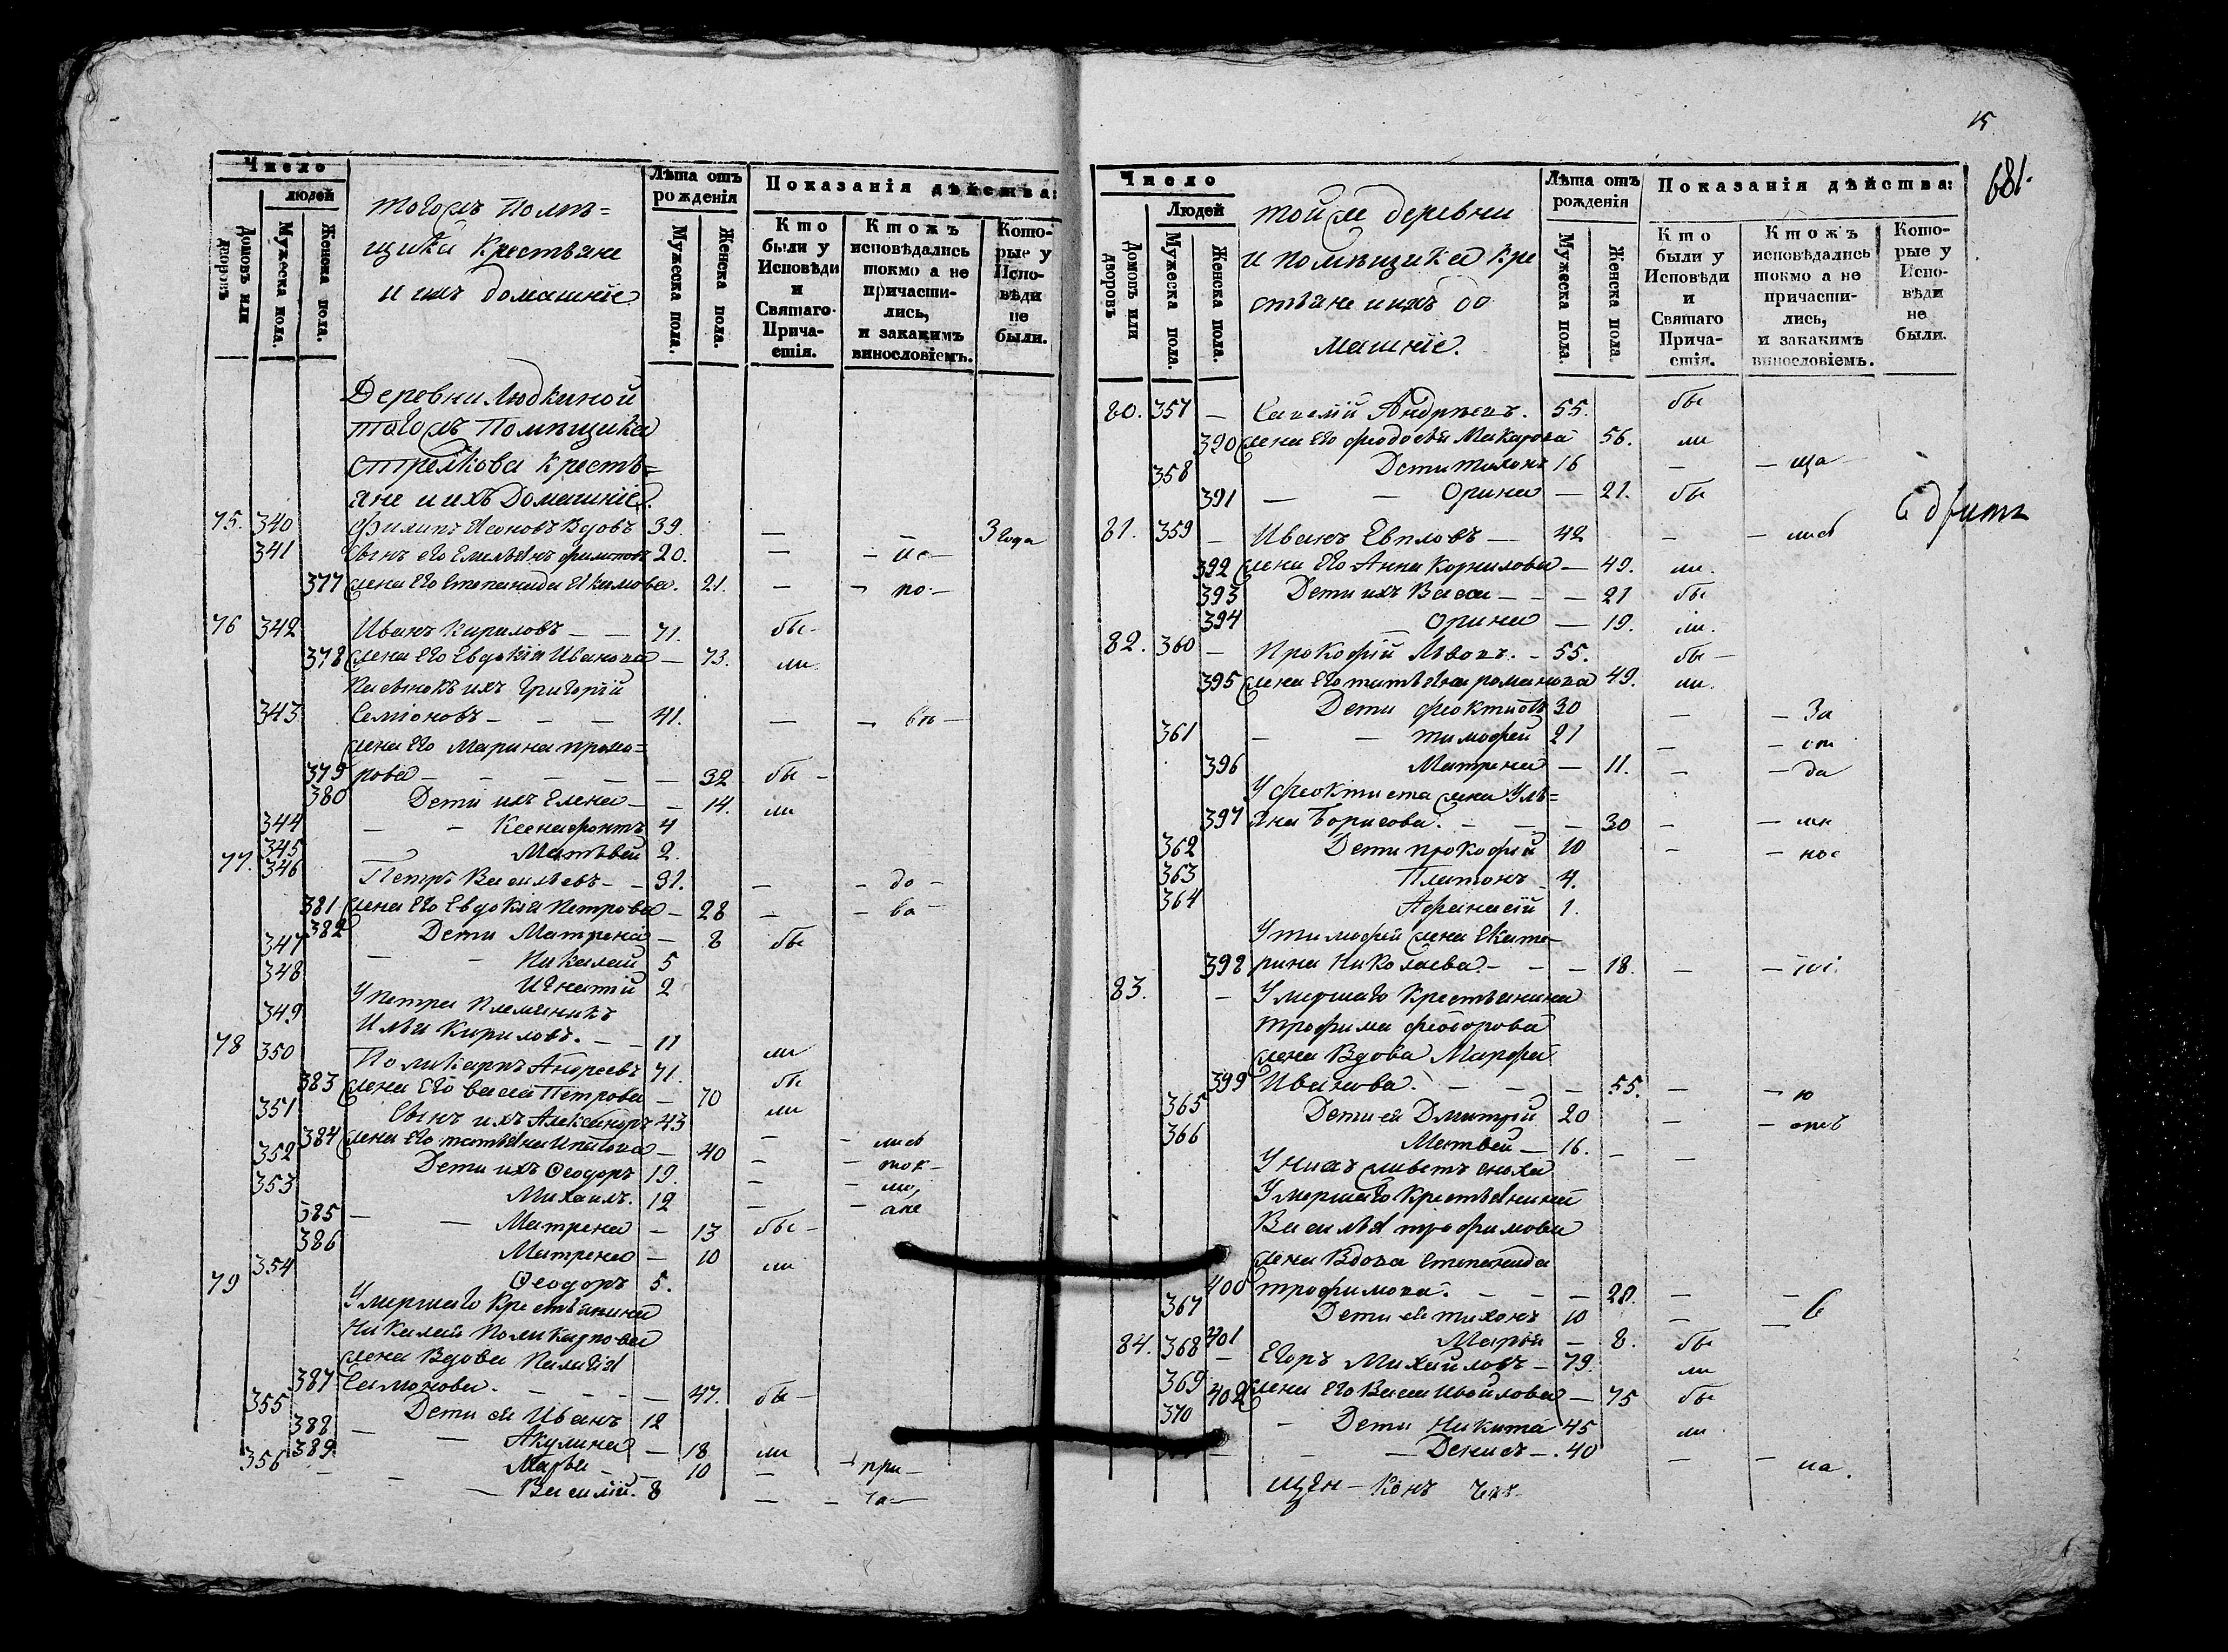 Число
людей
Домовъ или дворовъ
Мужеска пола.
Женска пола.
Лѣта отъ рожденія
Мужеска пола.
Женска пола.
Показанія дѣйства:
Кто были у Исповѣди и Святаго Причастія.
Ктожъ исповѣдались токмо а не причастились, и закакимъ винословіемъ.
Которые у Исповѣди не были.
тогожъ Помѣ=
щика Крестьяне
и ихъ домашніе
Деревни Людкиной
тогожъ Помѣщика
Стрелкова кресть=
яне и ихъ Домашніе.
75. 340 Филипъ Леоновъ Вдовъ 39. — — 3 года
341 Сынъ его Емельянъ Филиповъ 20. — — ис —
377 жена Его Степанида Якимова. 21. — — по —
76 342 Иванъ Кириловъ — — 71. бы-
378 жена Его Евдокія Иванова — 73. ли
Пасынокъ ихъ Григорій
343 Семіоновъ — — — 41. — — вѣ —
жена Его Марина
379 рова — — — — — 32 бы —
380 Дети ихъ Елена — — 14. ли
344 — — Ксенафонтъ 4
345 Матѣвей 2.
77. 346 Петръ Васильевъ — — 31. — — до —
381 жена Его Евдокія Петрова — 28 — — ва —
382 Дети Матрена — 8 бы
347 — — Николай 5
348 Игнатій 2
У Петра Племяникъ
349 Илья Кириловъ. — — 11 ли
78 350 Поликарпъ Андреевъ 71. бы
383 жена Его Васса Петрова — 70 ли
351 Сынъ ихъ Александръ 43 — — лись
384 жена его татьяна Ипатова — 40 — — ток —
352 Дети ихъ Ѳеодоръ 19. — — мо,
353 Михаилъ. 12 — — ане
385 — — Матрена — 13 бы —
386 Матрена — 10 ли
354 Ѳеодоръ 5.
79 Умершаго Крестьянина
Николая Поликарпова
жена Вдова Палагія
387 Самонова. — — — — 47. бы —
355 Дети ея Иванъ 12
388 — — Акулина — 18 ли
389 — — Марья — — 10 — — при —
356 — Василій. 8 — — ча —
15
681.
Число
Людей
Домовъ или дворовъ
Мужеска пола.
Женска пола.
Лѣта отъ рожденія
Мужеска пола.
Женска пола.
Показанія дѣйства:
Кто были у Исповѣди и Святаго Причастія.
Ктожъ исповѣдались токмо а не причастились, и закакимъ винословіемъ.
Которые у Исповѣди не были.
тойже деревни
и помѣщика Кре
стьяне и ихъ до
машніе.
80. 357 — Савелій Андрѣевъ. 55. бы
390 жена Его Феодосья Макарова 56. ли
358 Дети тихонъ 16 — — ща
391 — — Орина — 21. бы
81. 359 — Иванъ Евпловъ — 42 — — лись
392 жена Его Анна Корнилова — 49. ли.
393 Дети ихъ Васса — — — 21 бы
394 — Орина — 19. ли.
82. 360 — Прокофій Львовъ. — 55. бы —
395 жена Его татьяна романова 49. ли.
Дети Феоктистъ 30 — — За
361 — — тимофей 21 — — от
396 Матрена — 11. — — да
У Феоктиста жена Уль=
397 яна Борисова. — — — 30 — —
362 Дети прокофій 10 — — нос
363 Платонъ 4.
364 Афанасій 1.
У тимофея жена Екате-
398 рина Николаева. — — — 18. — —
83. — Умершаго Крестьянина
трофима Феодорова
жена Вдова Марфа
399 Иванова. — — — 55. — — ю
365 Дети ея Дмитрій 20 — —
366 Матвей — 16. — —
У нихъ живетъ сноха
Умершаго Крестьянина
Василья трофимова
жена Вдова Степанида
400 трофимова. — — — 28. — —
367 Дети ея тихонъ 10 — — в
401 Марья — 8. бы
84. 368 — Егоръ Михайловъ — 79. ли
402 жена Его Васса Ивойлова — 75 бы
369 — Дети Никита 45 ли
370 — — Денисъ — 40 — — на.